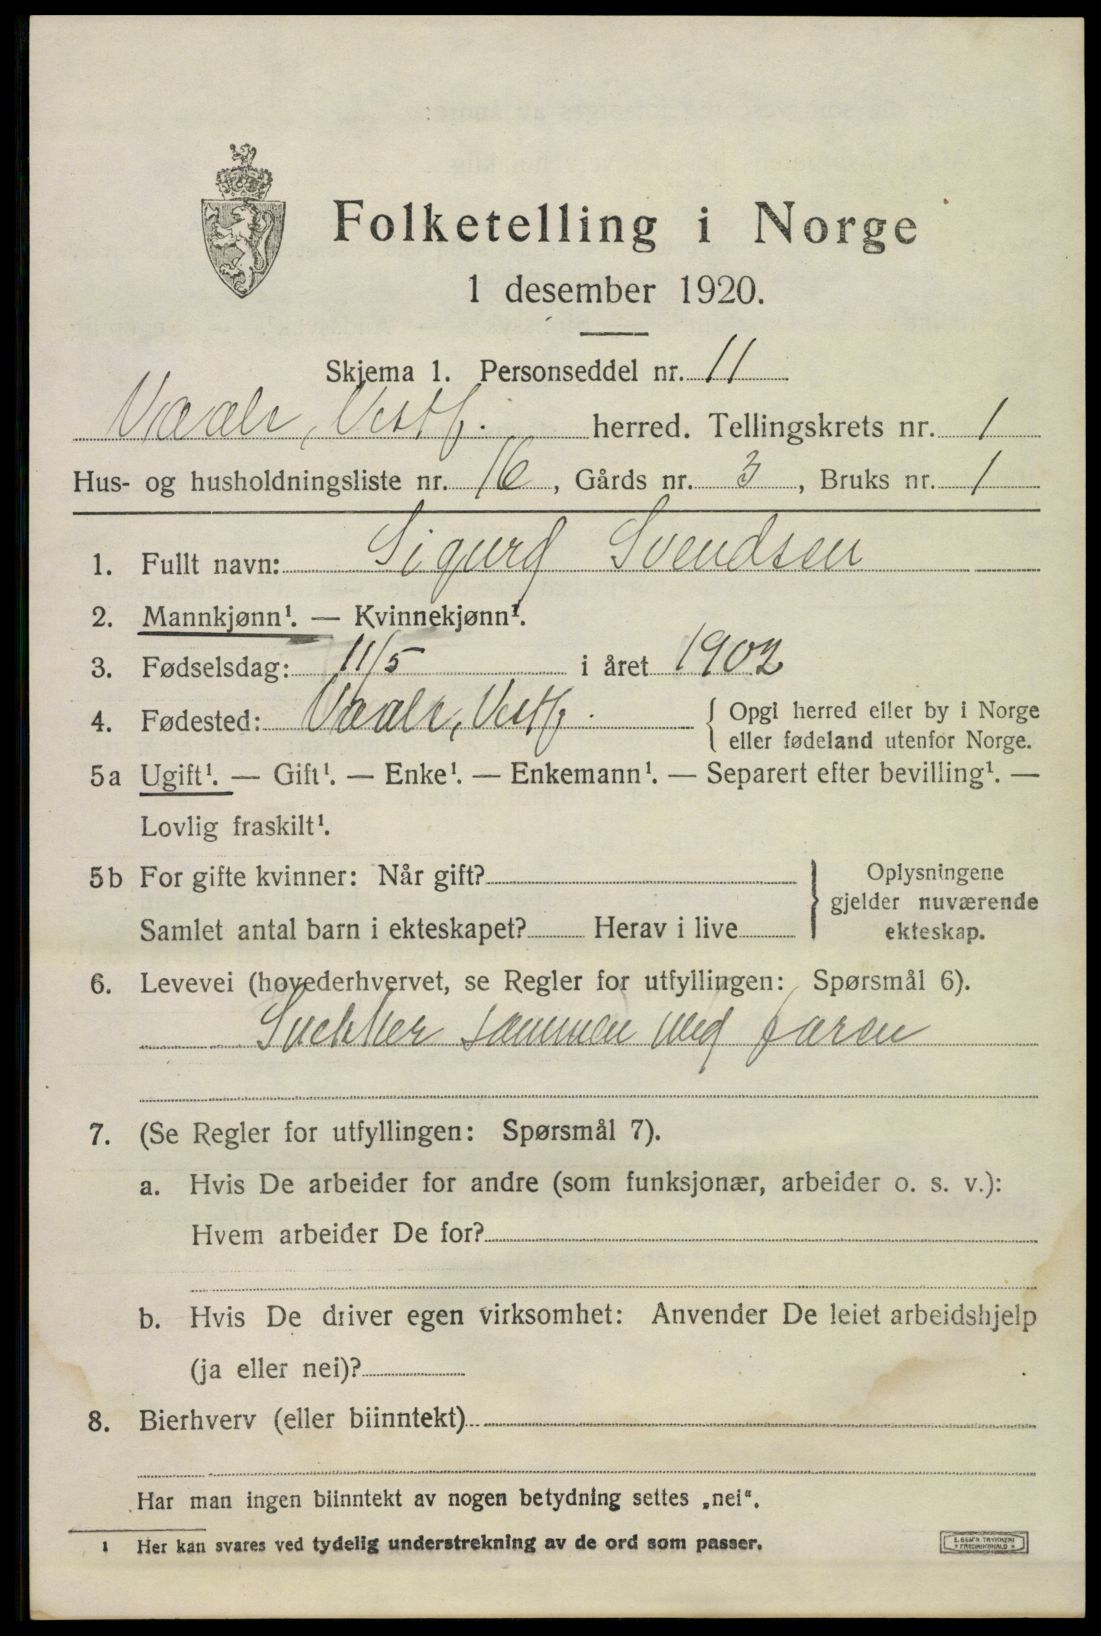 Folketelling i Norge
1 desember 1920.
Skjema 1. Personseddel nr. 11
Vaale, Vestf. herred. Tellingskrets nr. 1
Hus- og husholdningsliste nr. 16, Gårds nr. 3, Bruks nr. 1
1. Fullt navn: Sigurd Svendsen
2. Mannkjønn¹. — Kvinnekjønn¹.
3. Fødselsdag: 11/5 i året 1902
4. Fødested: Vaale, Vestf. { Opgi herred eller by i Norge
eller fødeland utenfor Norge.
5a Ugift¹. — Gift¹. — Enke¹. — Enkemann¹. — Separert efter bevilling¹. —
Lovlig fraskilt¹.
5b For gifte kvinner: Når gift?
Samlet antal barn i ekteskapet? Herav i live
} Oplysningene
gjelder nuværende
ekteskap.
6. Levevei (hovederhvervet, se Regler for utfyllingen: Spørsmål 6).
Snekker sammen med faren
7. (Se Regler for utfyllingen: Spørsmål 7).
a. Hvis De arbeider for andre (som funksjonær, arbeider o. s. v.):
Hvem arbeider De for?
b. Hvis De driver egen virksomhet: Anvender De leiet arbeidshjelp
(ja eller nei)?
8. Bierhverv (eller biinntekt)
Har man ingen biinntekt av nogen betydning settes „nei“.
¹ Her kan svares ved tydelig understrekning av de ord som passer.